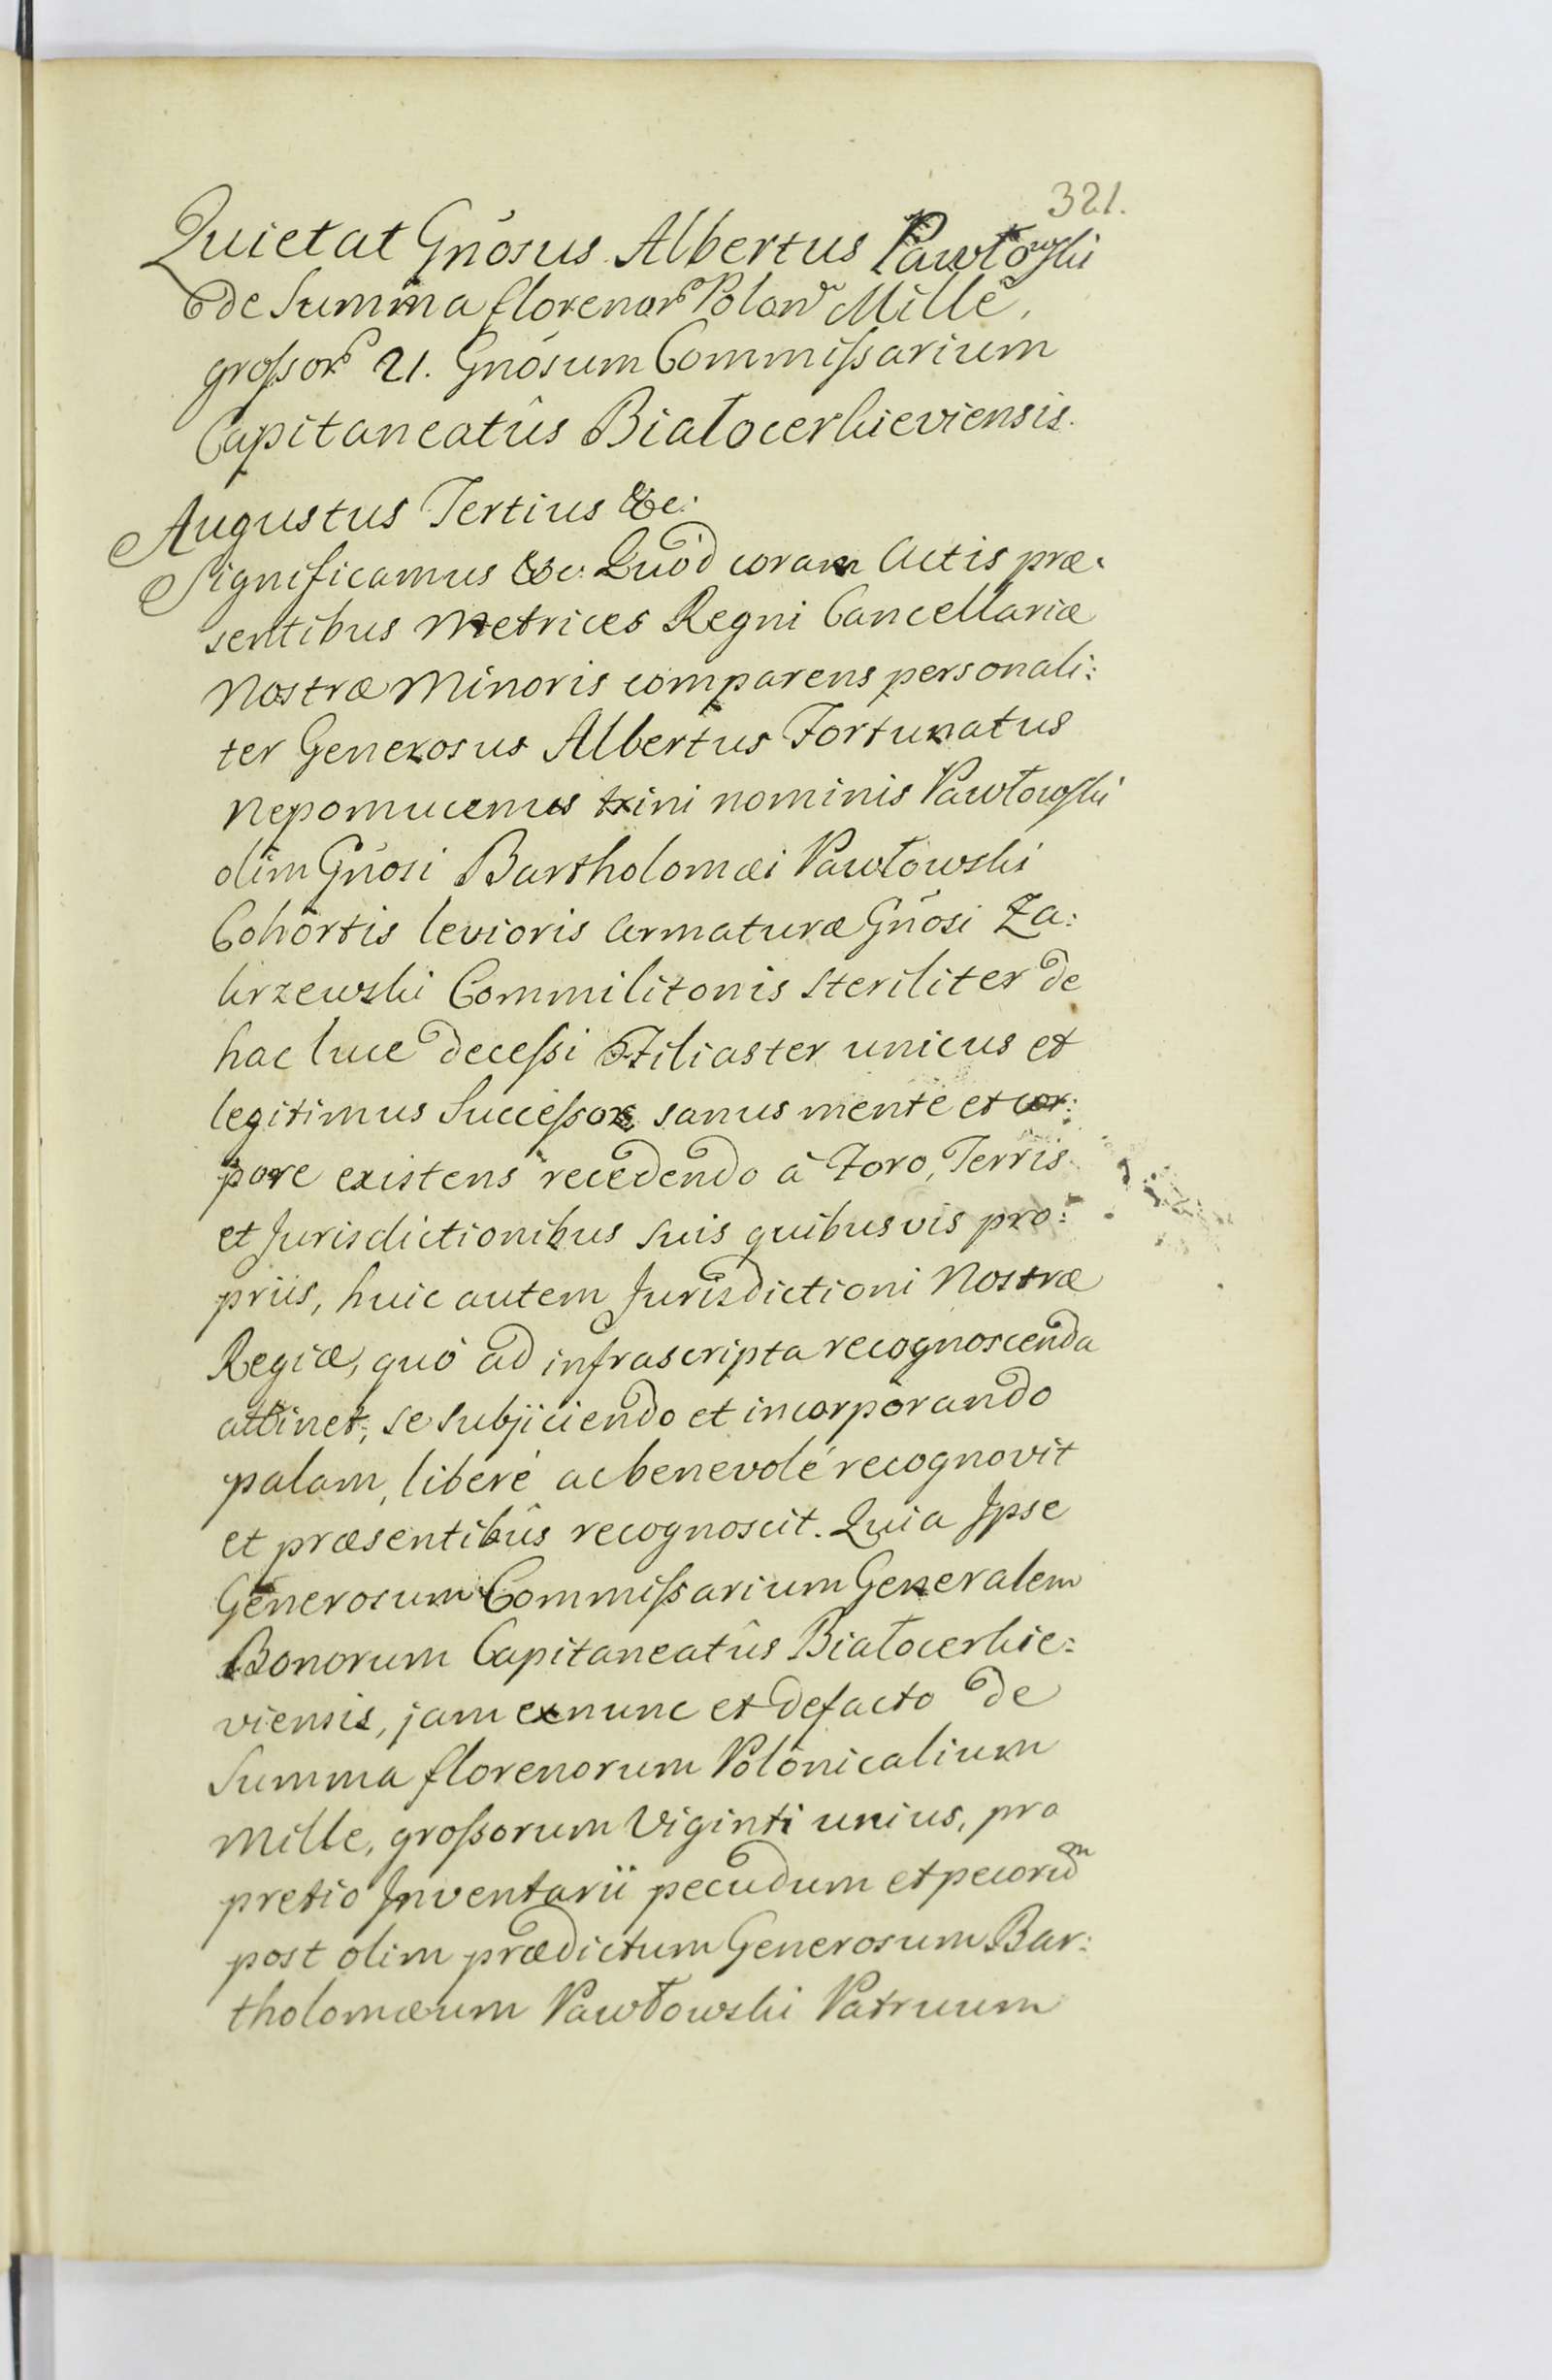 321.
Quietat Gnosus Albertus Pawłowski
de Summa florenor Polon Mille,
grossor 21. Gnosum Commissarium
Capitaneatûs Białocerkieviensis.
Augustus Tertius &c:
Significamus &c: Quòd coram Actis præ-
sentibus Metrices Regni Cancellariæ
Nostræ Minoris comparens personali:
ter Generosus Albertus Fortunatus
Nepomucenus trini nominis Pawłowski
olim Gnosi Bartholomæi Pawłowski
Cohortis levioris Armaturæ Gnosi Za:
krzewski Commilitonis steriliter de
hac luce decessi Filiaster unicus et
legitimus Successor, sanus mente et cor:
pore existens recedendo à Foro, Terris
et Jurisdictionibus suis quibusvis pro:
priis, huic autem Jurisdictioni Nostræ
Regiæ, quò ad infrascripta recognoscenda
attinet, se subjiciendo et incorporando
palam, liberé ac benevolé recognovit
et præsentibûs recognoscit. Quia Ipse
Generosum Commissarium Generalem
Bonorum Capitaneatûs Białocerkie:
viensis, jam exnunc et defacto de
Summa florenorum Polonicalium
Mille, grossorum Viginti unius, pro
pretio Inventarii pecudum et pecorum
post olim prædictum Generosum Bar:
tholomæum Pawłowski Patruum